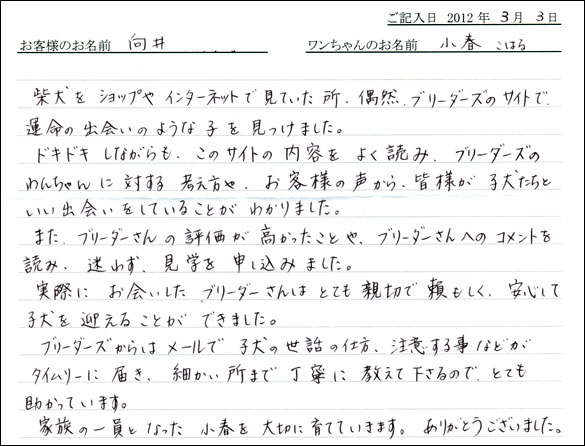 ご記入日 2012年 3月 3日
お客様のお名前 向井 ワンちゃんのお名前 小春 こはる
柴犬を ショップや インターネットで 見ていた 所、偶然、ブリーダーズの サイトで、
運命の 出会いの ような 子 を 見つけました。
ドキドキ しながらも、このサイトの 内容を よく 読み、ブリーダーズの
わんちゃんに 対する 考え方や、お客様の 声から、皆様が 子犬たちと
いい 出会い をしていることが わかりました。
また、ブリーダーさんの 評価が 高かったことや、ブリーダーさんへの コメントを
読み、迷わず、見学を 申し込みました。
実際に お会いした ブリーダーさんは とても 親切で 頼もしく、安心して
子犬を 迎えることが できました。
ブリーダーズからは メールで 子犬の 世話の 仕方、注意する事 などが
タイムリーに 届き、細かい 所まで 丁寧に 教えて 下さるので、とても
助かっています。
家族の 一員と なった 小春を 大切に 育てていきます。ありがとうございました。